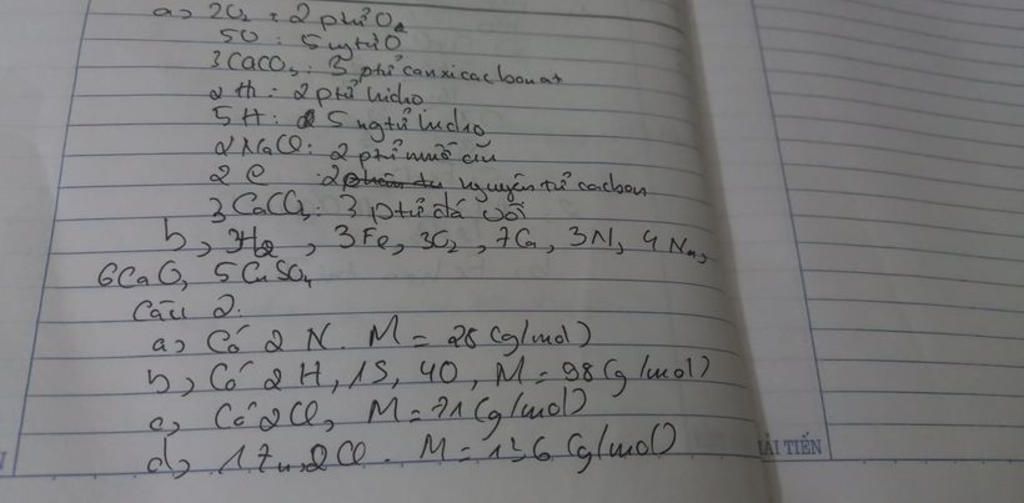 a, 2O₂ : 2 phtử O₂
5O : 5 ngtử O
3CaCO₃ : 3 phtử canxi cacbonat
2H₂ : 2 phtử hiđro
5H : 5 ngtử hiđro
2NaCl : 2 phtử muối ăn
2C : 2 nguyên tử cacbon
3CaCO₃ : 3 phtử đá vôi
b, 3H₂, 3Fe, 3O₂, 7Ca, 3N, 4Na,
6CaO, 5CuSO₄
Câu 2.
a, Có 2N. M = 28 (g/mol)
b, Có 2H, 1S, 4O, M = 98 (g/mol)
c, Có 2Cl, M = 71 (g/mol)
d, 1Zn, 2Cl. M = 136 (g/mol)
HẢI TIẾN